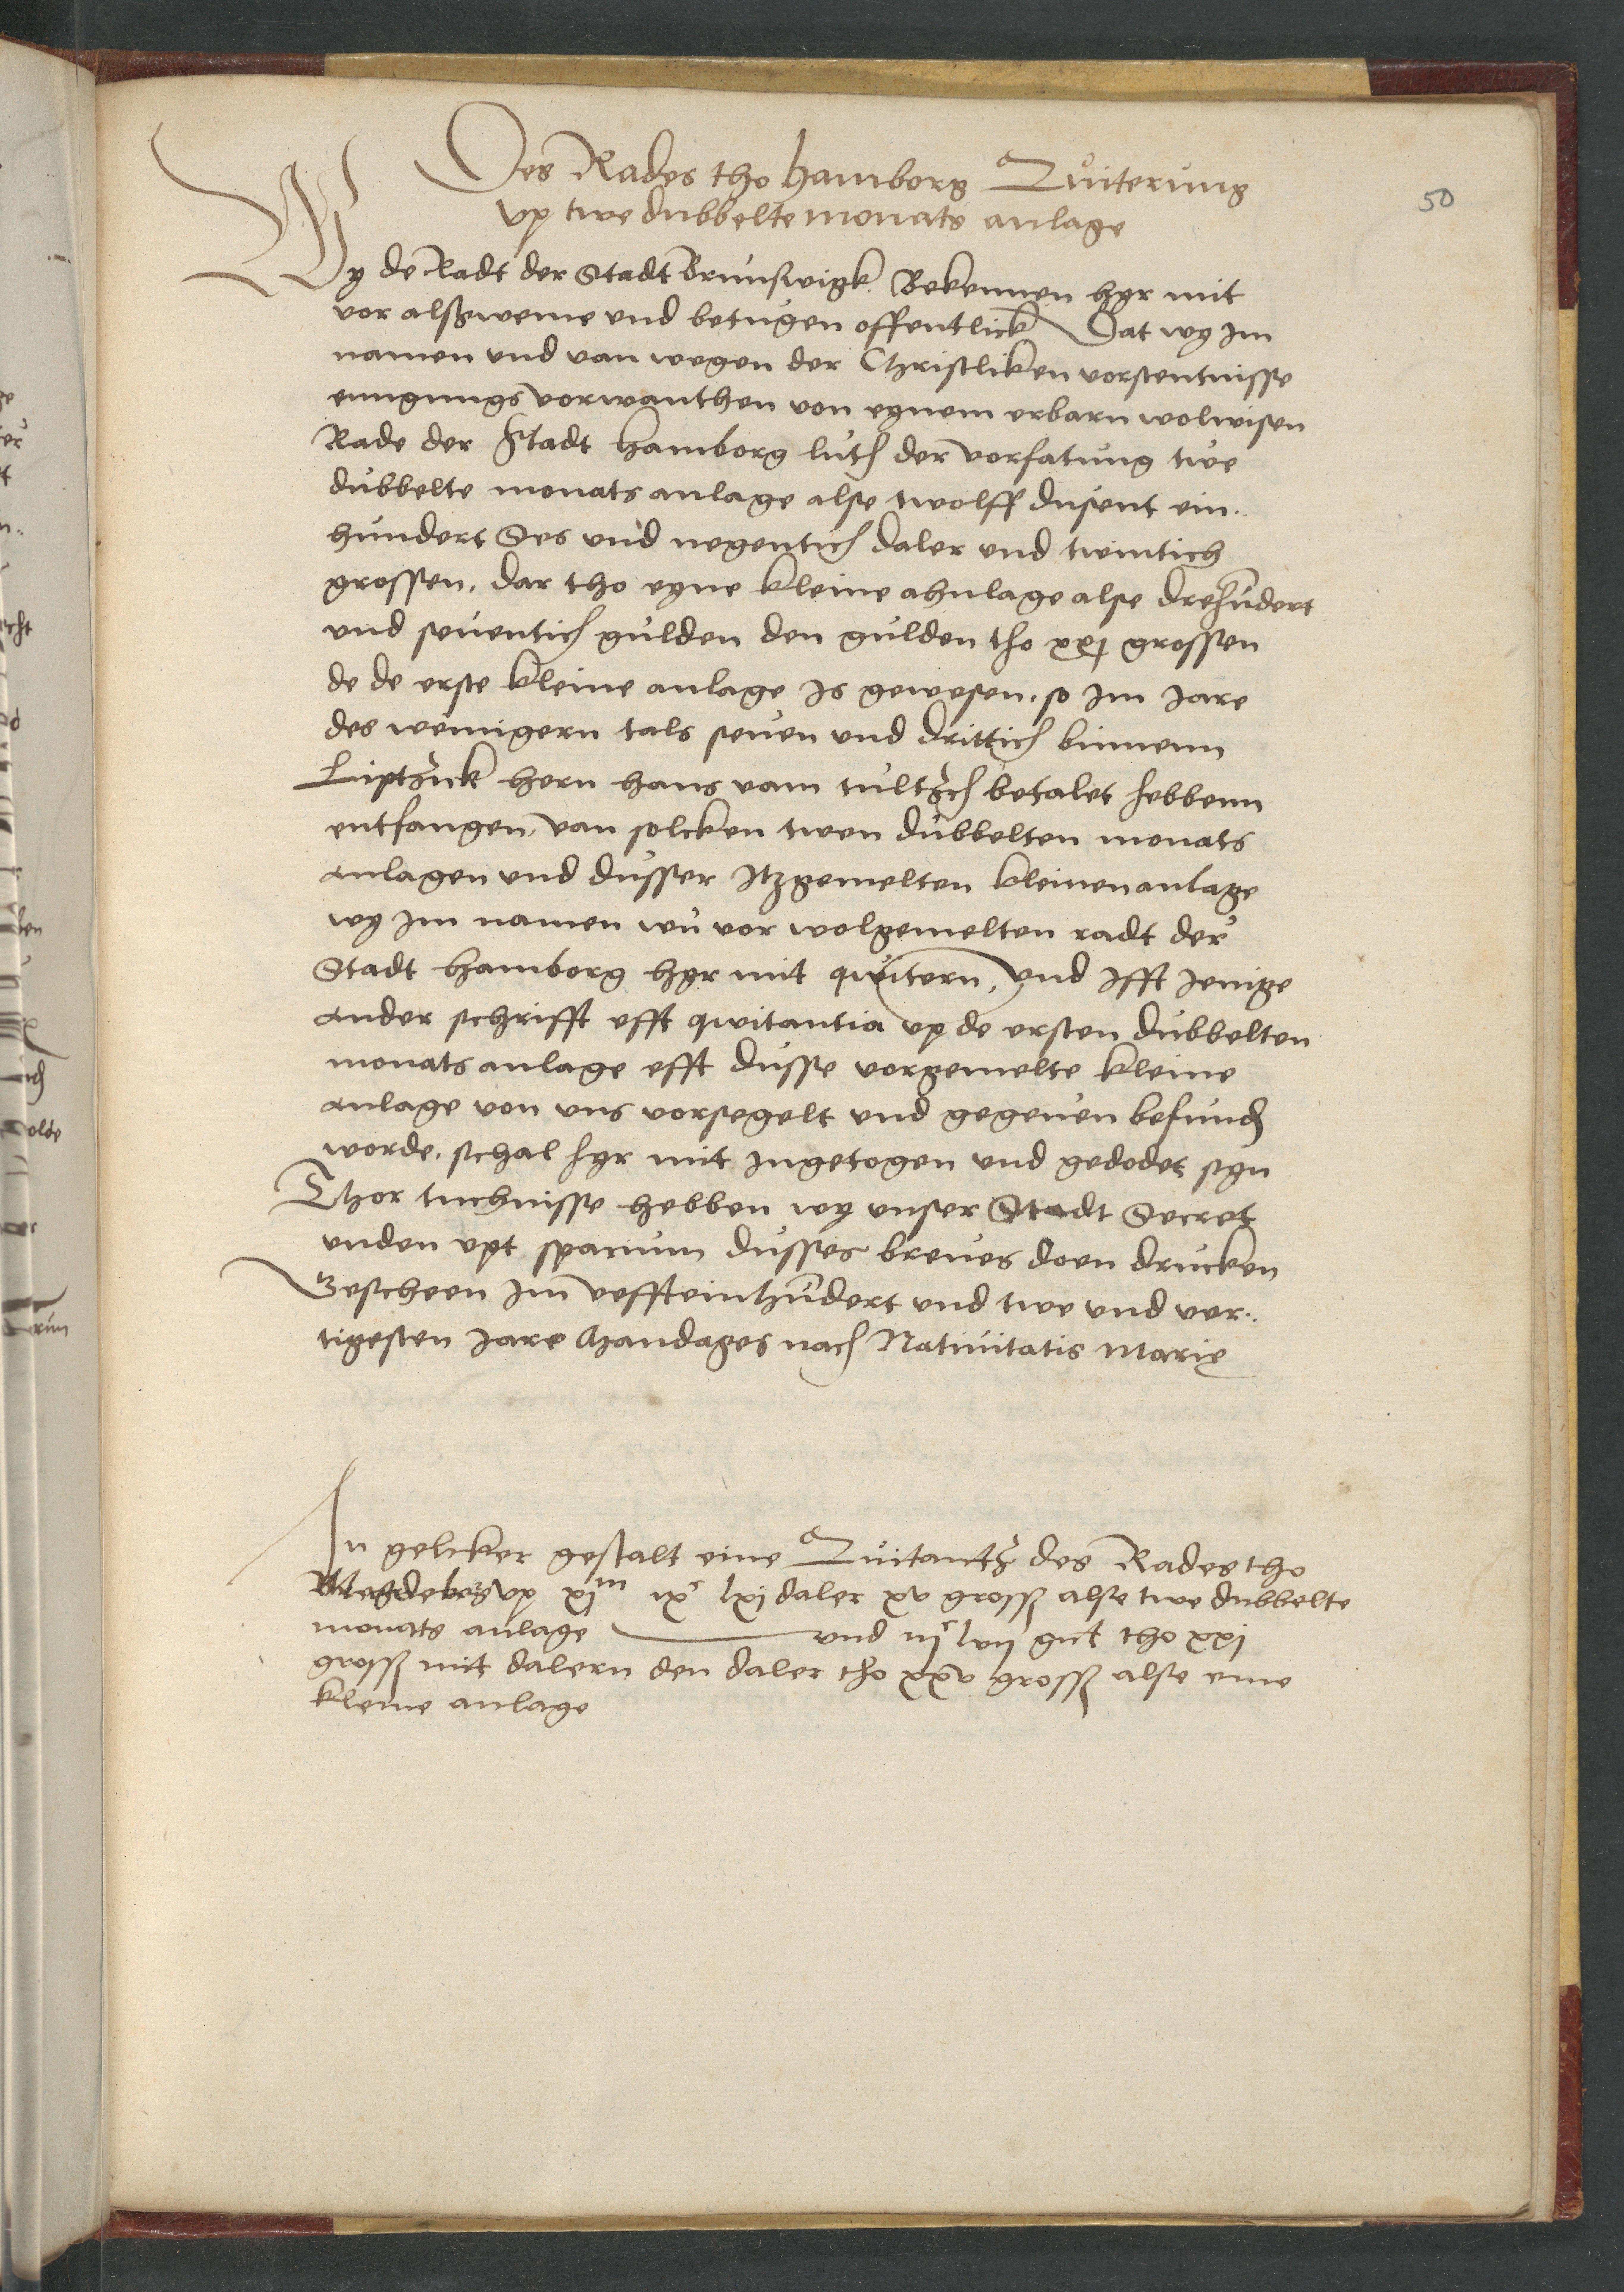 Des Rades tho hamborg Quiterung
vp twe dubbelte monats anlage
50
Wy de Radt der Stadt Brunswigk. Bekennen hyr mit
vor alßweme vnd betugen offentlick Dat wy im
namen vnd van wegen der Christliken vorstentnisse
eynigungs vorwanthen von eynem erbarn wolwisen
Rade der Stadt hamborg luth der vorfatung twe
dubbelte monats anlage alse twolff dusent ein..
hundert Ses vnd negentich daler vnd twintich
grossen. dar tho eyne kleine ahnlage alse drehundert
vnd seuentich gulden den gulden tho xxj grossen
de de erste kleine anlage is gewesen. so im Jare
des wenigern tals seuen vnd drittich binnenn
Liptzick hern hans vam tultzch betalet hebbenn
entfangen. van solcken twen dubbelten monats
anlagen vnd dusser Itzgemelten kleinen anlage
wy im namen wu vor wolgemelten radt der
Stadt hamborg hyr mit qwitern, Vnd Ifft Jenige
ander schrifft efft qwitantia vp de ersten dubbelten
monats anlage efft dusse vorgemelte kleine
anlage von vns vorsegelt vnd gegeuen befund
worde. schal hyr mit Ingetogen vnd gedodet syn
Thor tuchnisse hebben wy vnser Stadt Secret
vnden vpt spacium dusses breues doen drucken
Gescheen im veffteinhundert vnd twe vnd ver..
tigesten Jare Mandages nach Natiuitatis Marie
In geliker gestalt eine Quitantz des Rades tho
Magdeborg vp xjm ixc lxj daler xv grosß alse twe dubbelte
monats anlage vnd iijc lvij gul tho xxi
grosß mit dalern den daler tho xxv grosß alse eine
kleine anlage